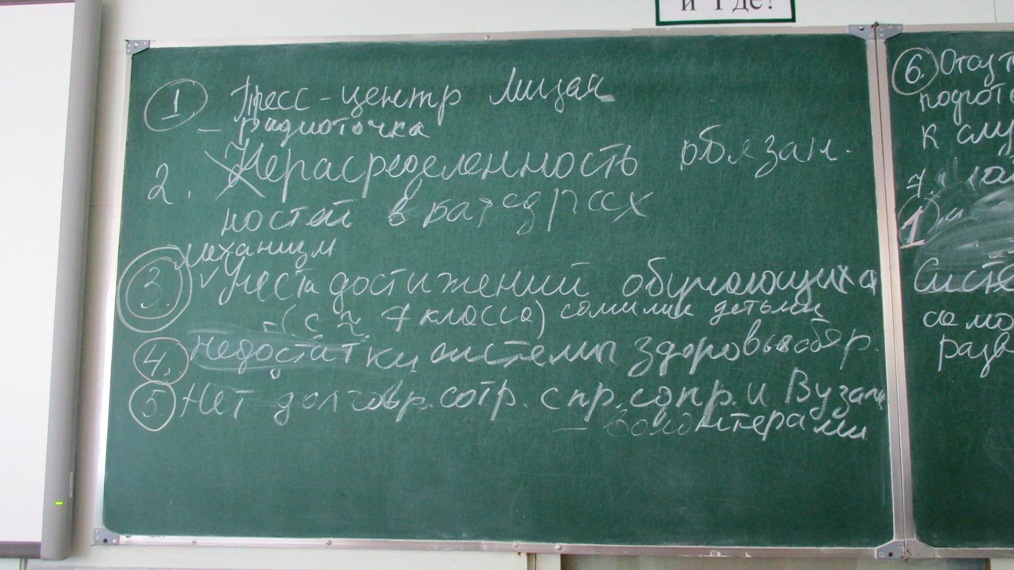 и Где?
1 Пресс-центр Лицея
- радиоточка
2. Нерасределенность обязан-
ностей в катедрах
механизм
3. Учета достижений обучающихся
(с 7 класса) самими детьми
4. Недостатки системы здоровьесбер.
5. Нет договр. сотр. с пр. сопр. и Вузами
- волонтерами
6. Отсут
подгот
к слу
7.
1
Систе
само
разв